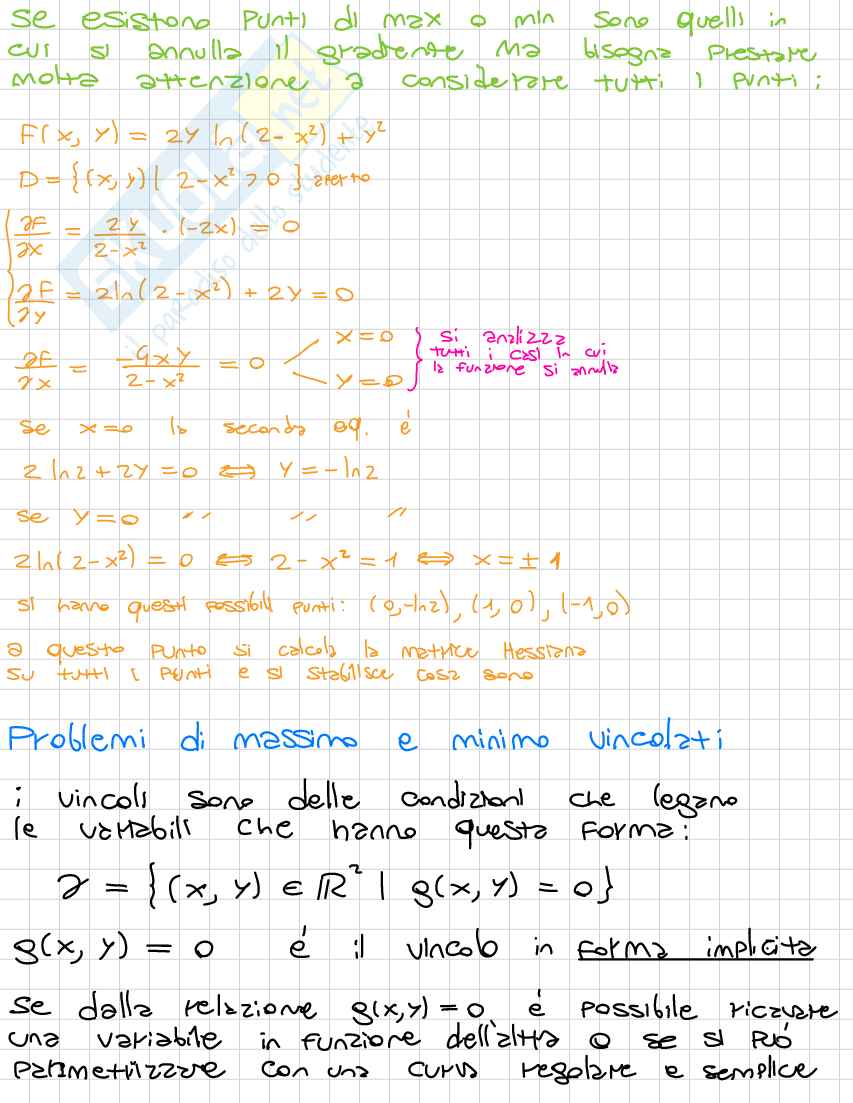 se esistono punti di max o min sono quelli in
cui si annulla il gradiente ma bisogna prestare
molta attenzione a considerare tutti i punti:
F(x, y) = 2y ln(2-x²) + y²
D = {(x, y) | 2-x² > 0} aperto
∂F/∂x = 2y/(2-x²) · (-2x) = 0
∂F/∂y = 2ln(2-x²) + 2y = 0
∂F/∂x = -4xy/(2-x²) = 0
x=0
y=0
si analizza
tutti i casi in cui
la funzione si annulla
se x=0 la seconda eq. é
2 ln2 + 2y = 0 ⟺ y = -ln2
se y=0 '' '' ''
2ln(2-x²) = 0 ⟺ 2-x² = 1 ⟺ x = ±1
si hanno questi possibili punti: (0,-ln2), (1, 0), (-1, 0)
a questo punto si calcola la matrice Hessiana
su tutti i punti e si stabilisce cosa sono
Problemi di massimo e minimo vincolati
i vincoli sono delle condizioni che legano
le variabili che hanno questa forma:
γ = {(x, y) ∈ ℝ² | g(x, y) = 0}
g(x, y) = 0 é il vincolo in forma implicita
se dalla relazione g(x,y) = 0 é possibile ricavare
una variabile in funzione dell'altra o se si puó
parametrizzare con una curva regolare e semplice
SKUOLA.net
il paradiso dello studente